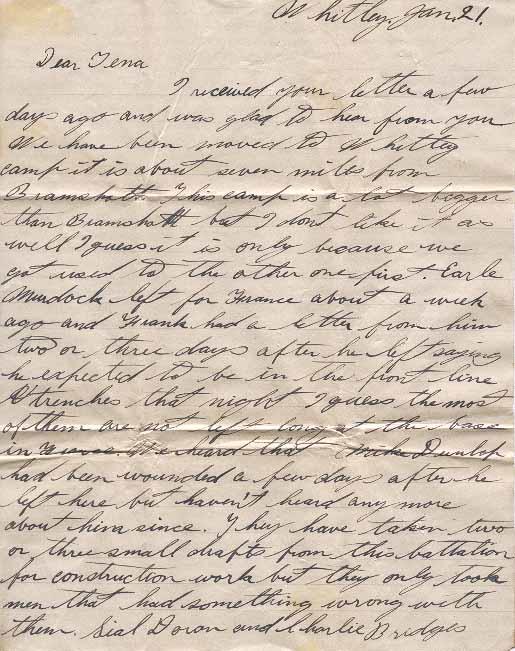 Whitley, Jan. 21.
Dear Tena
I received your letter a few
days ago and was glad to hear from you
We have been moved to Whitley
camp it is about seven miles from
Bramshott This camp is a lot bigger
than Bramshott but I dont like it as
well I guess it is only because we
got used to the other one first. Earle
Murdock left for France about a week
ago and Frank had a letter from him
two or three days after he left saying
he expected to be in the front line
trenches that night I guess the most
of them are not left long at the base
in We heard that Mike Dunlop
had been wounded a few days after he
left here but haven't heard any more
about him since. They have taken two
or three small drafts from this battalion
for construction work but they only took
men that had something wrong with
them. Sial Doran and Charlie Bridges